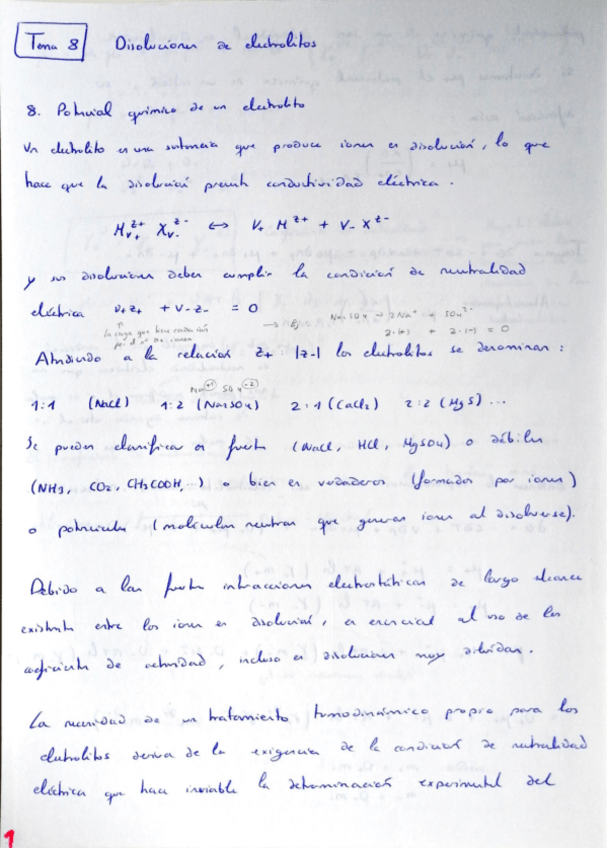 Tema 8 Disoluciones de electrolitos
8. Potencial químico de un electrolito
Un electrolito es una sustancia que produce iones en disolución, lo que
hace que la disolución presente conductividad eléctrica.
M_{ν+}^{z+} X_{ν-}^{z-} ↔ ν+ M^{z+} + ν- X^{z-}
y sus disoluciones deben cumplir la condición de neutralidad
eléctrica ν+z+ + ν-z- = 0
la carga que hace cada ión
por el nº de iones
→ Ej Na2SO4 → 2Na+ + SO4^{2-}
2·(+1) + 1·(-2) = 0
Atendiendo a la relación z+ : |z-| los electrolitos se denominan:
Na(+1) SO4(-2)
1:1 (NaCl) 1:2 (Na2SO4) 2:1 (CaCl2) 2:2 (MgS) ...
Se pueden clasificar en fuertes (NaCl, HCl, MgSO4) o débiles
(NH3, CO2, CH3COOH, ...) o bien en verdaderos (formados por iones)
o potenciales (moléculas neutras que generan iones al disolverse).
Debido a las fuertes interacciones electrostáticas de largo alcance
existentes entre los iones en disolución, es esencial el uso de los
coeficientes de actividad, incluso en disoluciones muy diluidas.
La necesidad de un tratamiento termodinámico propio para los
electrolitos deriva de la exigencia de la condición de neutralidad
eléctrica que hace inviable la determinación experimental del
1